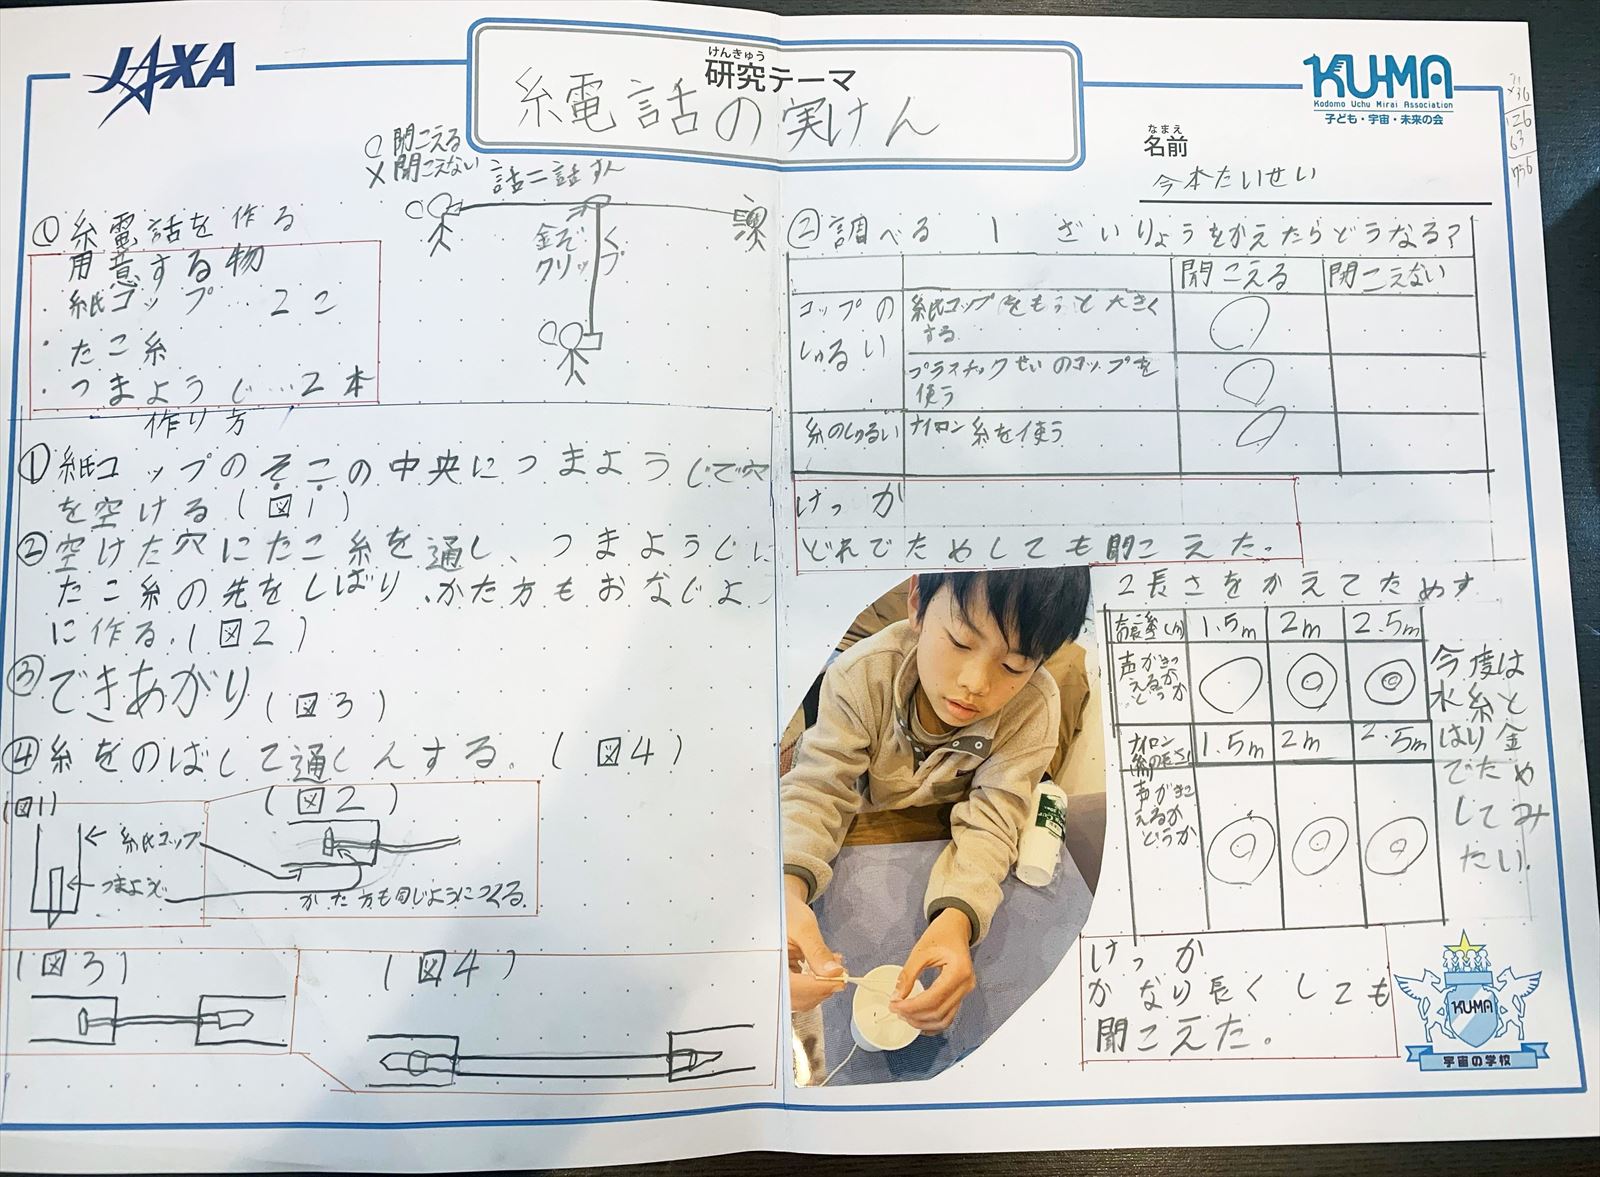 JAXA
けんきゅう
研究テーマ
糸電話の実けん
KU-MA
Kodomo Uchu Mirai Association
子ども・宇宙・未来の会
なまえ
名前
今本たいせい
○聞こえる
×聞こえない
金ぞく
クリップ
①糸電話を作る
用意する物
・紙コップ…2こ
・たこ糸
・つまようじ…2本
作り方
①紙コップのそこの中央につまようじで穴
を空ける(図1)
②空けた穴にたこ糸を通し、つまようじに
たこ糸の先をしばり、かた方もおなじよ
に作る。(図2)
③できあがり(図3)
④糸をのばして通しんする。(図4)
(図1)
←紙コップ
←つまようじ
(図2)
かた方も同じようにつくる。
(図3)
(図4)
②調べる 1 ざいりょうをかえたらどうなる?
聞こえる 聞こえない
コップの
しゅるい
紙コップをもっと大きく
する ○
プラスチックせいのコップを
使う ○
糸のしゅるい ナイロン糸を使う ○
けっか
どれでためしても聞こえた。
2長さをかえてためす
1.5m 2m 2.5m
声がきこ
えるか
どうか
○ ◎ ◎
ナイロン
糸の長さ
1.5m 2m 2.5m
声がきこ
えるか
どうか
◎ ◎ ◎
今度は
水糸と
はり金
でため
してみ
たい。
けっか
かなり長くしても
聞こえた。
KU-MA
宇宙の学校
21
×36
126
63
756